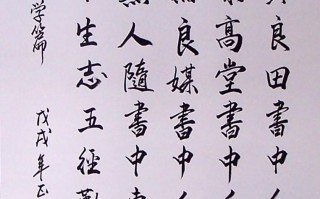 良田書中
高堂書中
良媒書中
人隨書中
生志五經勤
学篇 戊戌年正